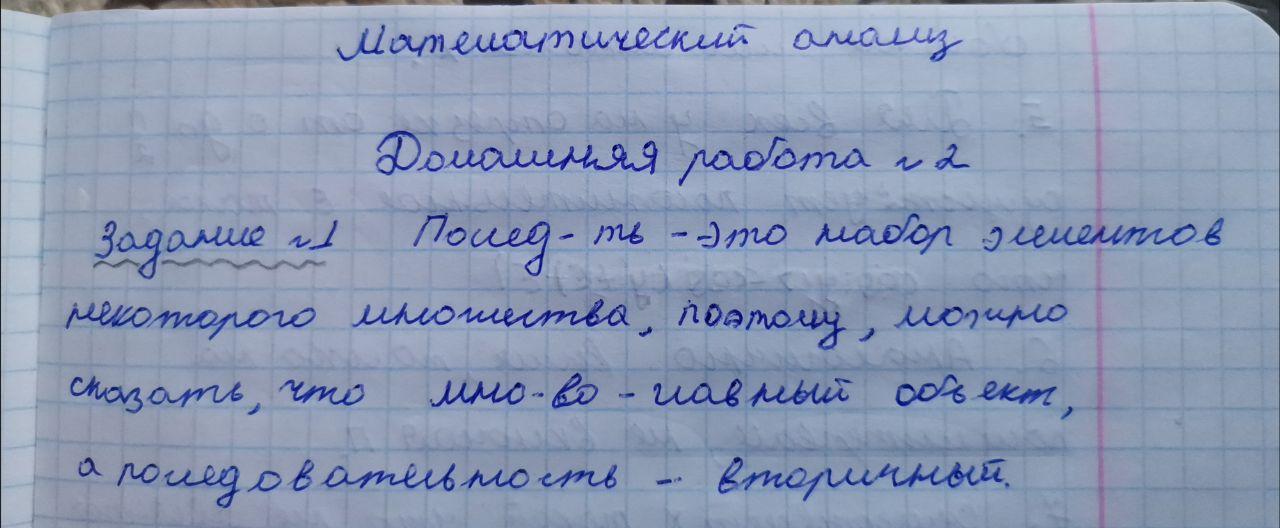 Математический анализ
Домашняя работа №2
Задание №1 Послед-ть - это набор элементов
некоторого множества, поэтому, можно
сказать, что мно-во - главный объект,
а последовательность - вторичный.